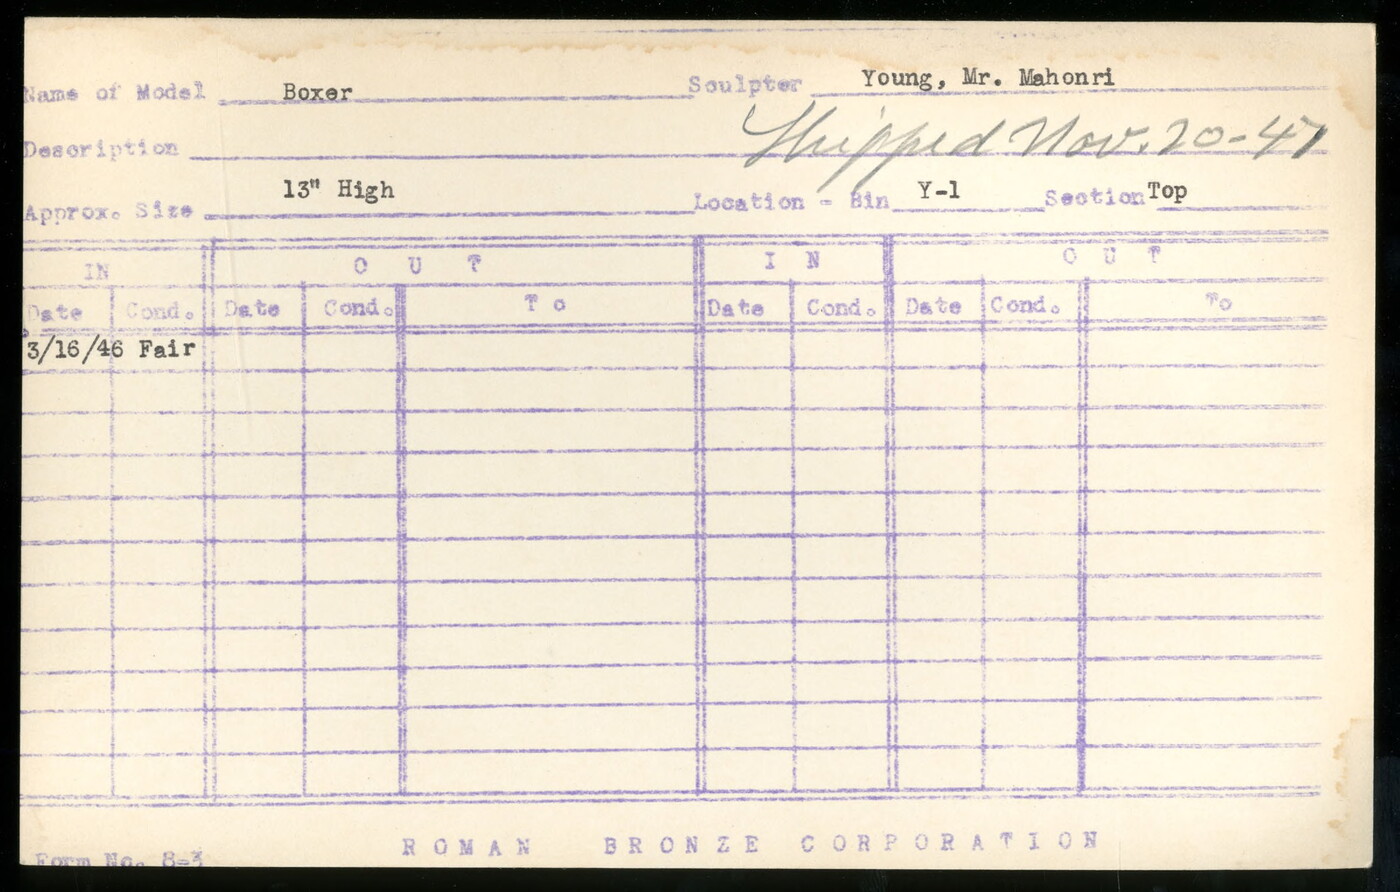 Name of Model Boxer Sculpter Young, Mr. Mahonri
Description Shipped Nov. 20-47
Approx. Size 13" High Location - Bin Y-1 Section Top
IN OUT IN OUT
Date Cond. Date Cond. To Date Cond. Date Cond. To
3/16/46 Fair
ROMAN BRONZE CORPORATION
Form No. 8-3